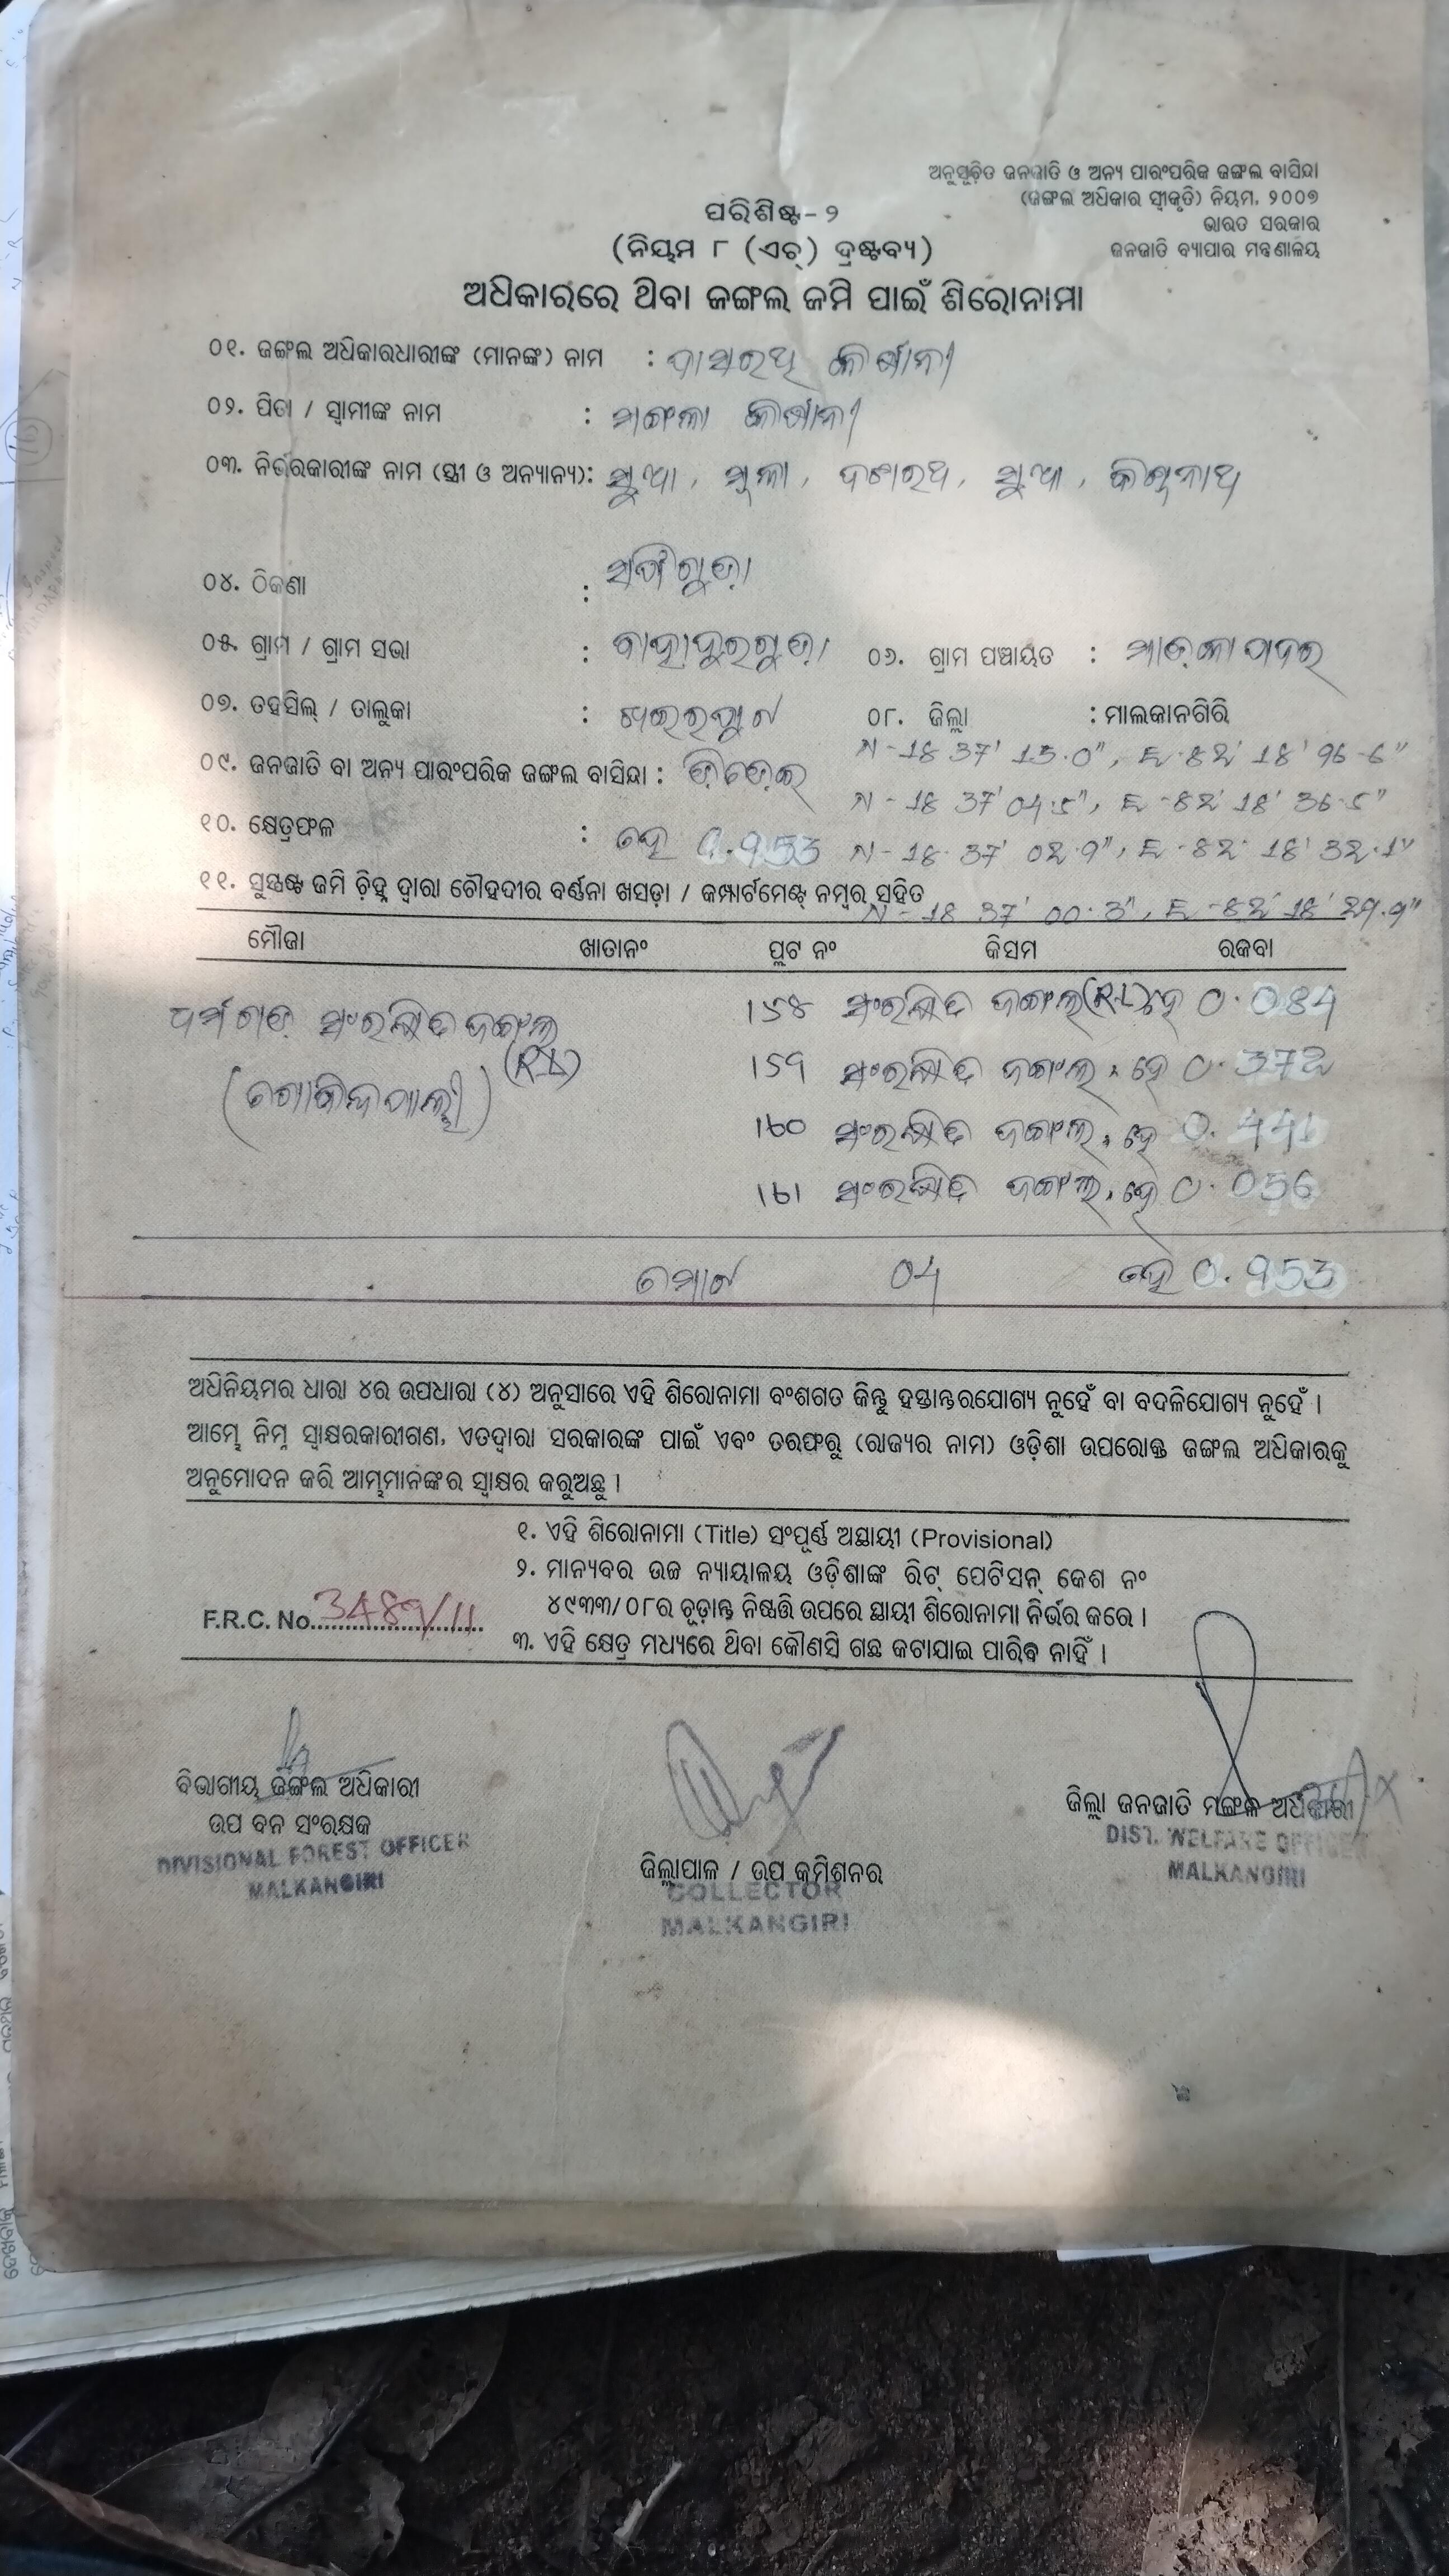 ଅନୁସୂଚିତ ଜନଜାତି ଓ ଅନ୍ୟ ପାରଂପରିକ ଜଙ୍ଗଲ ବାସିନ୍ଦା
(ଜଙ୍ଗଲ ଅଧିକାର ସ୍ୱୀକୃତି) ନିୟମ, ୨୦୦୭
ଭାରତ ସରକାର
ଜନଜାତି ବ୍ୟାପାର ମନ୍ତ୍ରଣାଳୟ
ପରିଶିଷ୍ଟ-୨
(ନିୟମ ୮ (ଏଚ୍) ଦ୍ରଷ୍ଟବ୍ୟ)
ଅଧିକାରରେ ଥିବା ଜଙ୍ଗଲ ଜମି ପାଇଁ ଶିରୋନାମା
୦୧. ଜଙ୍ଗଲ ଅଧିକାରଧାରୀଙ୍କ (ମାନଙ୍କ) ନାମ :
୦୨. ପିତା / ସ୍ୱାମୀଙ୍କ ନାମ : ମଙ୍ଗଳା
୦୩. ନିର୍ଭରକାରୀଙ୍କ ନାମ (ସ୍ତ୍ରୀ ଓ ଅନ୍ୟାନ୍ୟ):
୦୪. ଠିକଣା :
୦୫. ଗ୍ରାମ / ଗ୍ରାମ ସଭା : ବାହାଦୁରଗୁଡ଼ା ୦୬. ଗ୍ରାମ ପଞ୍ଚାୟତ :
୦୭. ତହସିଲ୍ / ତାଲୁକା : ଖଇରପୁଟ ୦୮. ଜିଲ୍ଲା : ମାଲକାନଗିରି
N-18 37' 13.0", E-82' 18' 96-6"
୦୯. ଜନଜାତି ବା ଅନ୍ୟ ପାରଂପରିକ ଜଙ୍ଗଲ ବାସିନ୍ଦା :
N-18 37' 04.5", E-82' 18' 36-5"
୧୦. କ୍ଷେତ୍ରଫଳ : ହେ 0.953 N-18 37' 02.9", E-82' 18' 32.1"
୧୧. ସୁସ୍ପଷ୍ଟ ଜମି ଚିହ୍ନ ଦ୍ୱାରା ଚୌହଦୀର ବର୍ଣ୍ଣନା ଖସଡ଼ା / କମ୍ପାର୍ଟମେଣ୍ଟ୍ ନମ୍ବର ସହିତ
N-18 37' 00.3", E-82' 18' 29.9"
ମୌଜା ଖାତାନଂ ପ୍ଲଟ ନଂ କିସମ ରକବା
ଧର୍ମଗଡ଼ ସଂରକ୍ଷିତ ଜଙ୍ଗଲ 158 ସଂରକ୍ଷିତ ଜଙ୍ଗଲ ହେ 0.084
(ଗୋବିନ୍ଦପାଲ୍ଲୀ) 159 ସଂରକ୍ଷିତ ଜଙ୍ଗଲ, ହେ 0.372
160 ସଂରକ୍ଷିତ ଜଙ୍ଗଲ, ହେ 0.441
161 ସଂରକ୍ଷିତ ଜଙ୍ଗଲ, ହେ 0.056
ମୋଟ 04 ହେ 0.953
ଅଧିନିୟମର ଧାରା ୪ର ଉପଧାରା (୪) ଅନୁସାରେ ଏହି ଶିରୋନାମା ବଂଶଗତ କିନ୍ତୁ ହସ୍ତାନ୍ତରଯୋଗ୍ୟ ନୁହେଁ ବା ବଦଳିଯୋଗ୍ୟ ନୁହେଁ ।
ଆମ୍ଭେ ନିମ୍ନ ସ୍ୱାକ୍ଷରକାରୀଗଣ, ଏତଦ୍ୱାରା ସରକାରଙ୍କ ପାଇଁ ଏବଂ ତରଫରୁ (ରାଜ୍ୟର ନାମ) ଓଡ଼ିଶା ଉପରୋକ୍ତ ଜଙ୍ଗଲ ଅଧିକାରକୁ
ଅନୁମୋଦନ କରି ଆମ୍ଭମାନଙ୍କର ସ୍ୱାକ୍ଷର କରୁଅଛୁ ।
୧. ଏହି ଶିରୋନାମା (Title) ସଂପୂର୍ଣ୍ଣ ଅସ୍ଥାୟୀ (Provisional)
୨. ମାନ୍ୟବର ଉଚ୍ଚ ନ୍ୟାୟାଳୟ ଓଡ଼ିଶାଙ୍କ ରିଟ୍ ପେଟିସନ୍ କେଶ ନଂ
୪୯୩୩/୦୮ର ଚୂଡ଼ାନ୍ତ ନିଷ୍ପତ୍ତି ଉପରେ ସ୍ଥାୟୀ ଶିରୋନାମା ନିର୍ଭର କରେ ।
F.R.C. No. 3489/11
୩. ଏହି କ୍ଷେତ୍ର ମଧ୍ୟରେ ଥିବା କୌଣସି ଗଛ କଟାଯାଇ ପାରିବ ନାହିଁ ।
ବିଭାଗୀୟ ଜଙ୍ଗଲ ଅଧିକାରୀ
ଉପ ବନ ସଂରକ୍ଷକ
DIVISIONAL FOREST OFFICER
MALKANGIRI
ଜିଲ୍ଲାପାଳ / ଉପ କମିଶନର
COLLECTOR
MALKANGIRI
ଜିଲ୍ଲା ଜନଜାତି ମଙ୍ଗଳ ଅଧିକାରୀ
DIST. WELFARE OFFICER
MALKANGIRI